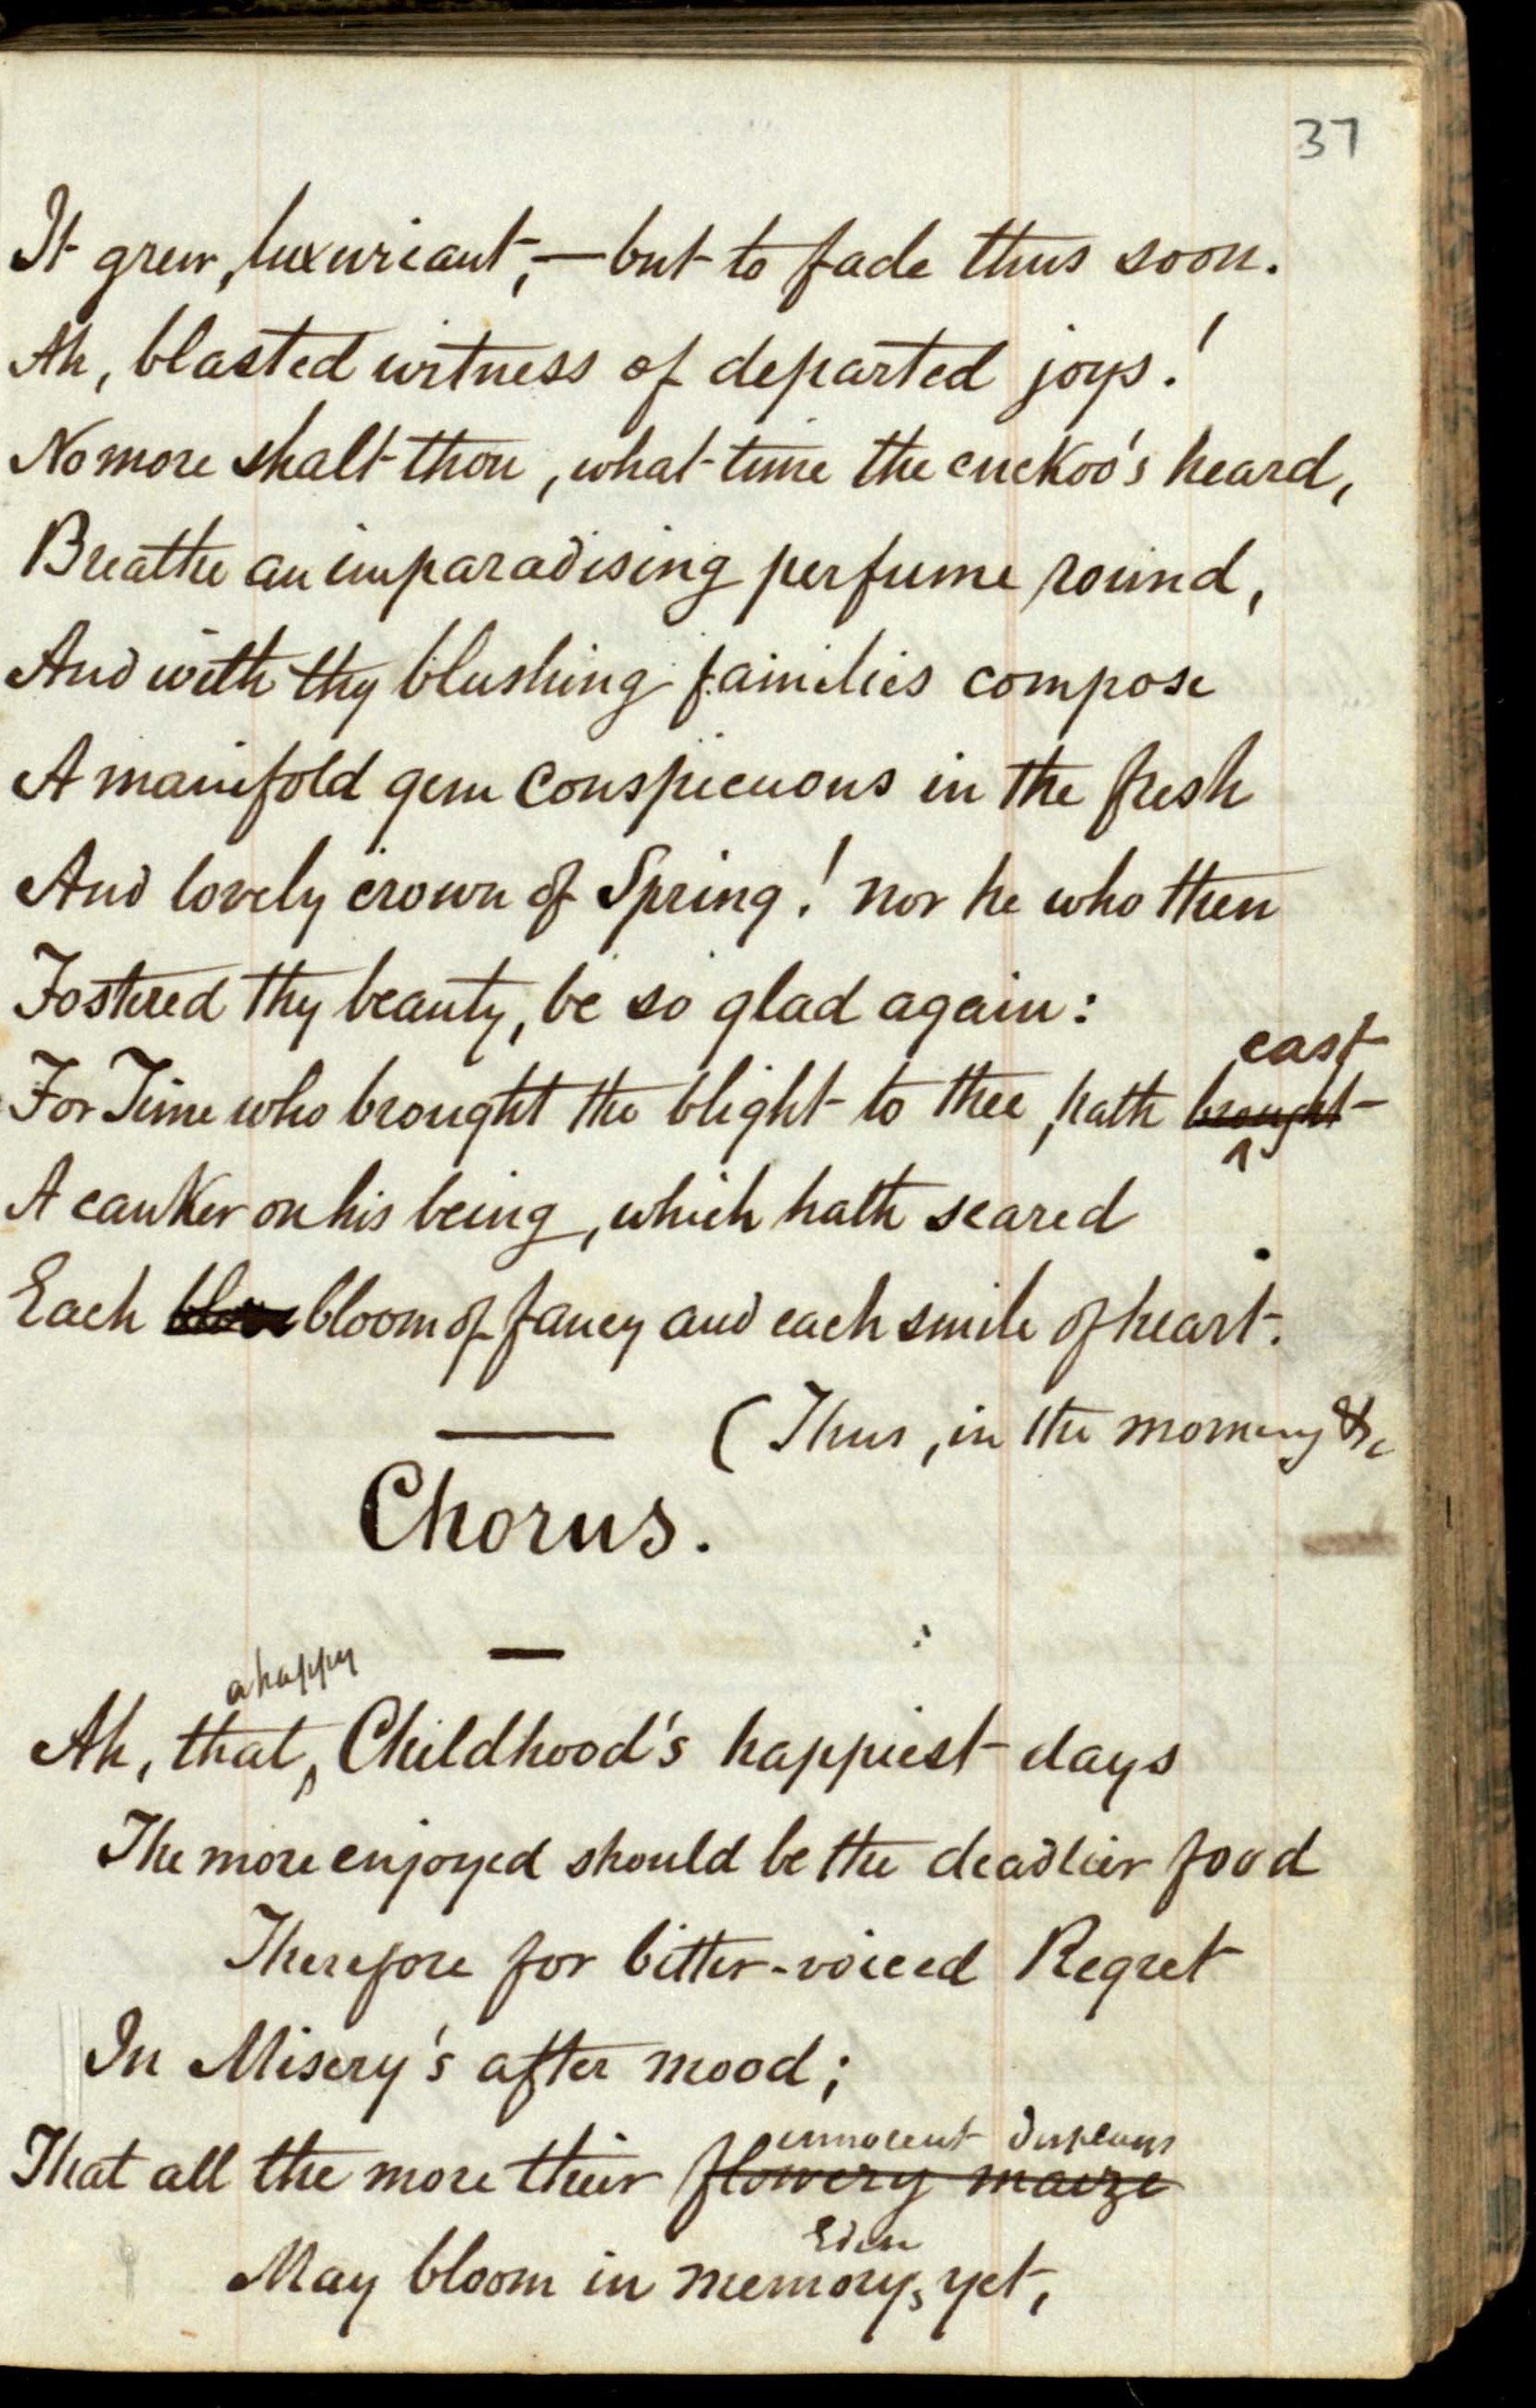 37
It grew, luxuriant,—but to fade thus soon.
Ah, blasted witness of departed joys!
No more shalt thou, what time the cuckoo's heard,
Breathe an imparadising perfume round,
And with thy blushing families compose
A manifold gem conspicuous in the fresh
And lovely crown of Spring! nor he who then
Fostered thy beauty, be so glad again:
cast
For Time who brought the blight to thee, hath brought
A canker on his being, which hath seared
Each bloom of fancy and each smile of heart.
(Thus, in the morning &c
Chorus.
a happy
Ah, that, Childhood's happiest days
The more enjoyed should be the deadlier food
Therefore for bitter-voiced Regret
In Misery's after mood;
innocent displays
That all the more their flowery maize
Eden
May bloom in memory, yet,